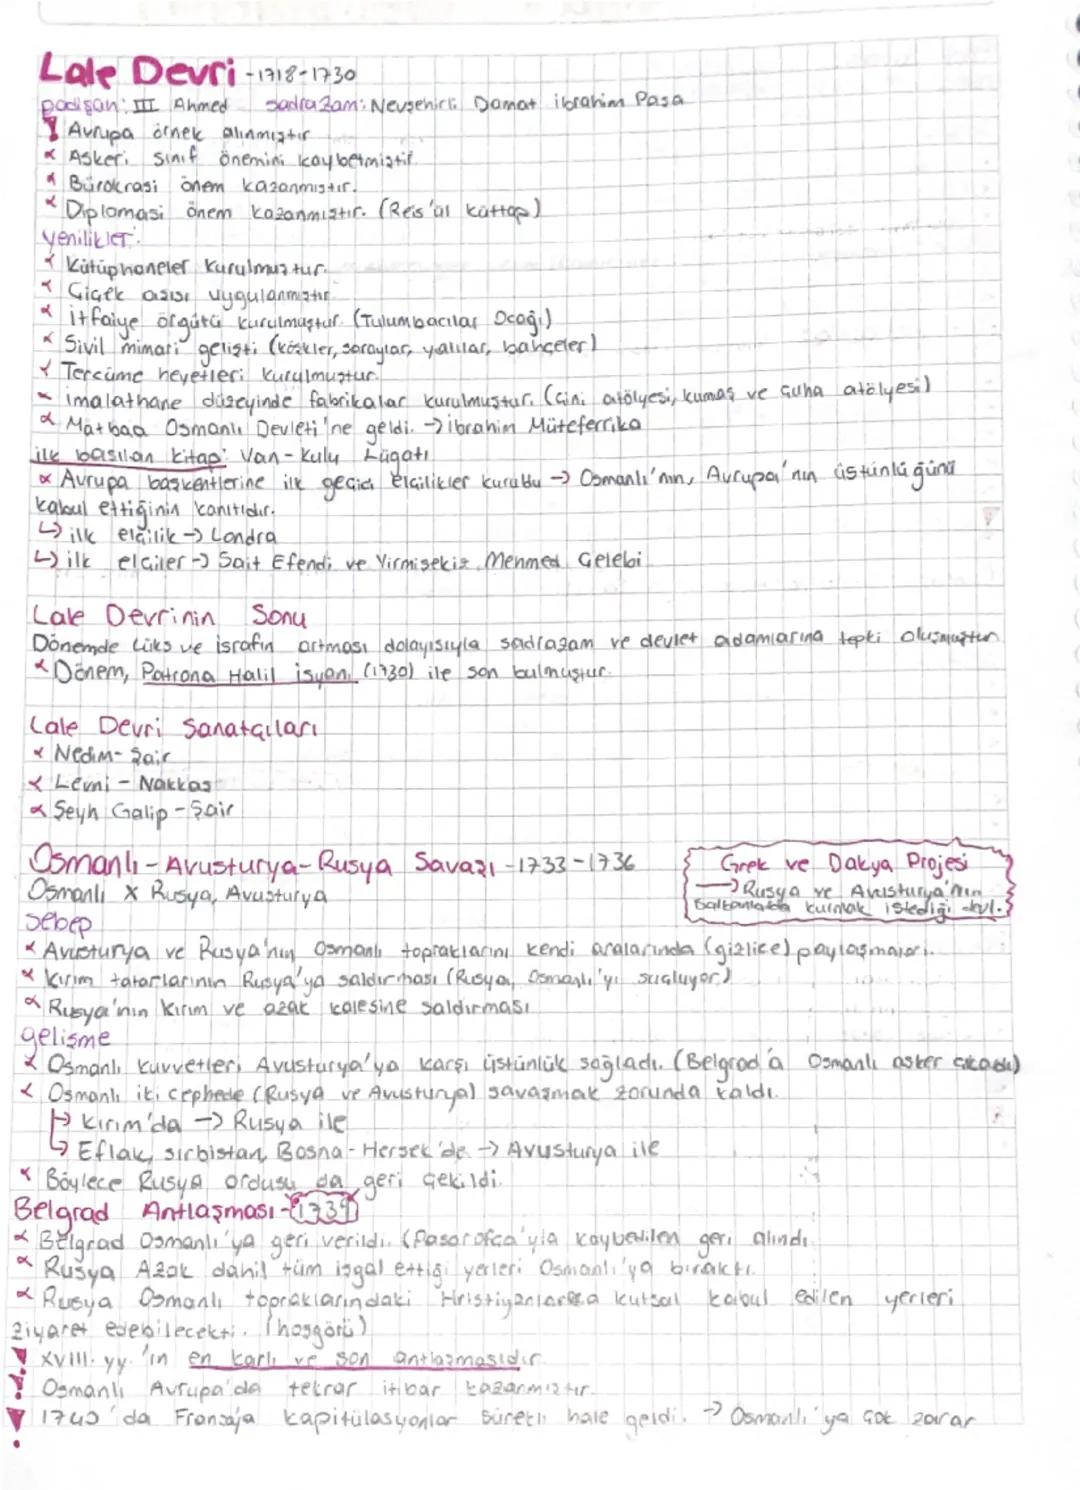 Lale Devri -1718-1730
padişah: III Ahmed sadrazam: Nevşehirli Damat ibrahim Paşa
! Avrupa örnek alınmıştır
* Askeri sınıf önemini kaybetmiştir.
* Bürokrasi önem kazanmıştır.
* Diplomasi önem kazanmıştır. (Reis'ül küttap)
yenilikler:
* Kütüphaneler kurulmuştur.
* Çiçek aşısı uygulanmıştır
* itfaiye örgütü kurulmuştur. (Tulumbacılar Ocağı)
* Sivil mimari gelişti (köşkler, saraylar, yalılar, bahçeler)
* Tercüme heyetleri kurulmuştur.
* imalathane düzeyinde fabrikalar kurulmuştur. (Çini atölyesi, kumaş ve çuha atölyesi)
* Matbaa Osmanlı Devleti'ne geldi. → ibrahim Müteferrika
ilk basılan kitap: Van-Kulu Lügatı
* Avrupa başkentlerine ilk geçici elçilikler kuruldu → Osmanlı'nın, Avrupa'nın üstünlüğünü
kabul ettiğinin kanıtıdır.
↳ ilk elçilik → Londra
↳ ilk elçiler → Sait Efendi ve Yirmisekiz Mehmed Çelebi
Lale Devrinin Sonu
Dönemde lüks ve israfın artması dolayısıyla sadrazam ve devlet adamlarına tepki oluşmuştur
* Dönem, Patrona Halil isyanı (1730) ile son bulmuştur.
Lale Devri Sanatçıları
* Nedim- Şair
* Levni - Nakkaş
* Şeyh Galip - Şair
Osmanlı - Avusturya- Rusya Savaşı -1733-1736
Grek ve Dakya Projesi
→ Rusya ve Avusturya'nın
Balkanlarda kurmak istediği dvl.
Osmanlı X Rusya, Avusturya
sebep
* Avusturya ve Rusya'nın Osmanlı topraklarını kendi aralarında (gizlice) paylaşmaları.
* Kırım tatarlarının Rusya'ya saldırması (Rusya, Osmanlı'yı suçluyor)
* Rusya'nın Kırım ve azak kalesine saldırması
gelişme
* Osmanlı kuvvetleri Avusturya'ya karşı üstünlük sağladı. (Belgrad'a Osmanlı asker çıkardı)
* Osmanlı iki cephede (Rusya ve Avusturya) savaşmak zorunda kaldı.
↳ Kırım'da → Rusya ile
↳ Eflak, sırbistan, Bosna - Hersek'de → Avusturya ile
* Böylece Rusya ordusu da geri çekildi.
Belgrad Antlaşması - 1739
* Belgrad Osmanlı'ya geri verildi. (Pasarofça'yla kaybedilen geri alındı.
* Rusya Azak dahil tüm işgal ettiği yerleri Osmanlı'ya bıraktı.
* Rusya Osmanlı topraklarındaki Hristiyanlarca kutsal kabul edilen yerleri
ziyaret edebilecekti. (hoşgörü)
! XVIII. yy.'ın en karlı ve son antlaşmasıdır.
! Osmanlı Avrupa'da tekrar itibar kazanmıştır.
! 1740'da Fransa'ya kapitülasyonlar sürekli hale geldi. → Osmanlı'ya çok zarar